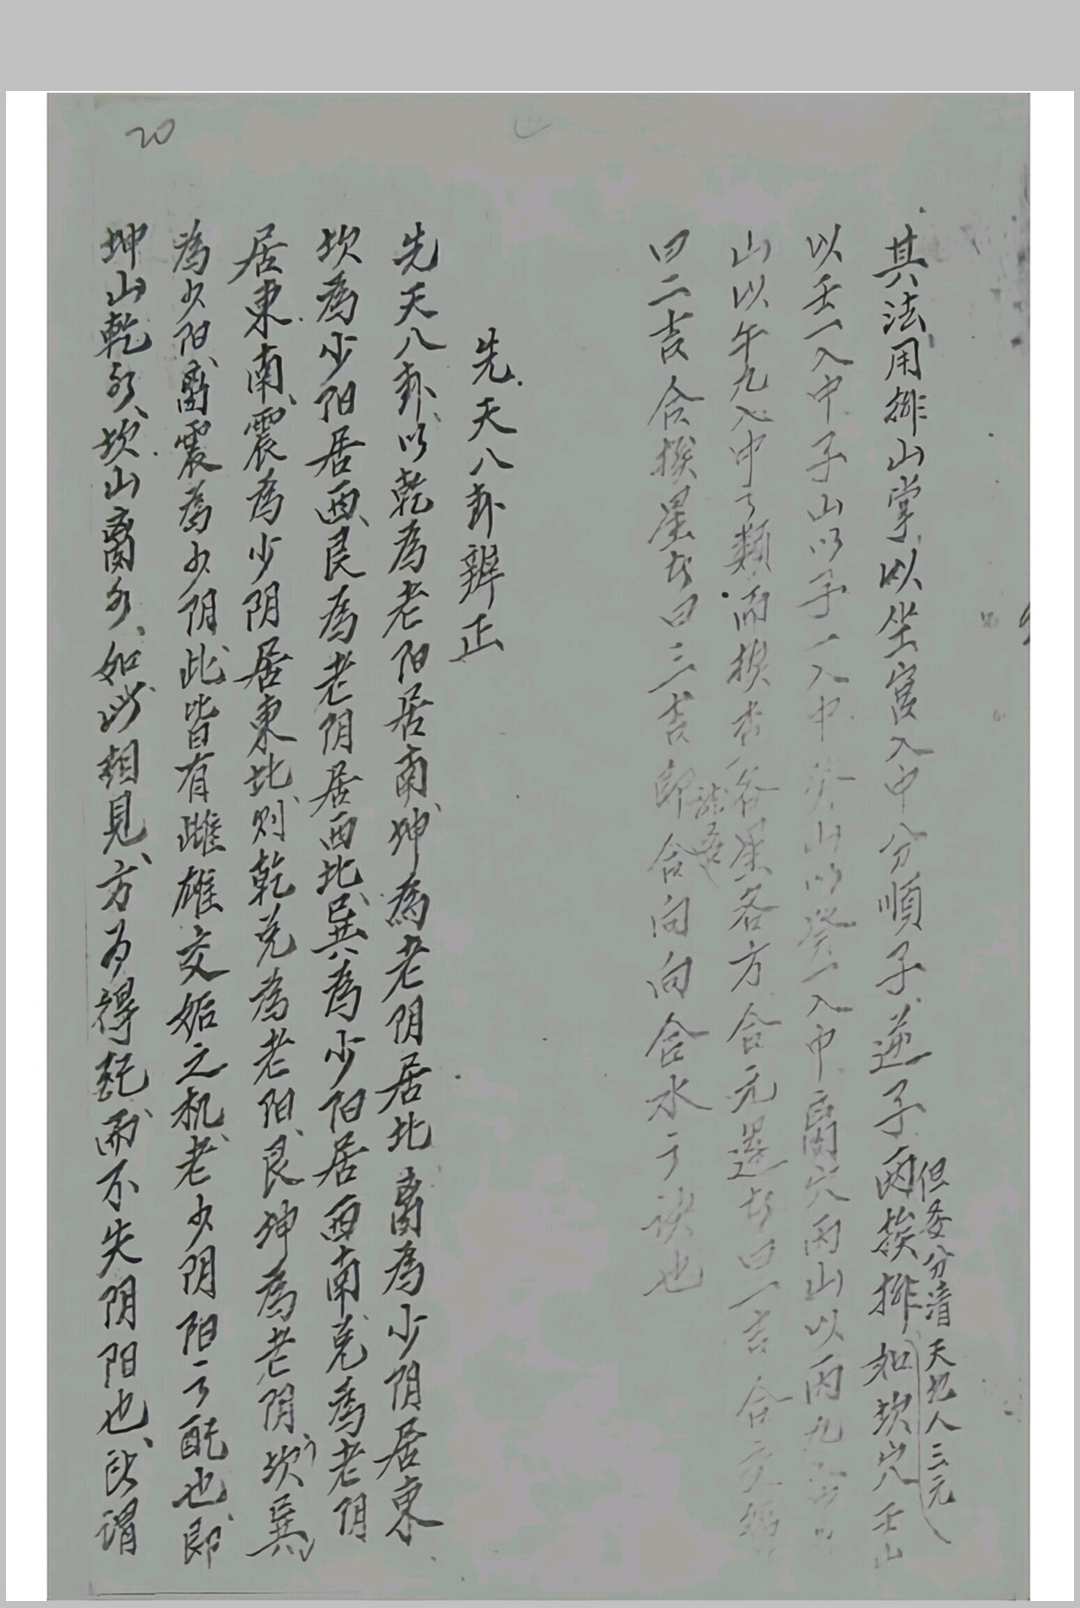 20
其法用排山掌以坐宫入中分順子逆子两挨排如坎穴壬山
但要分清天地人三元
以壬一入中子山以子一入中癸山以癸一入中离穴丙山以丙九入中午
山以午九入中之類而挨去各星各方合元運者曰一吉合交媾
曰二吉合挨星者曰三吉即合向向合水之诀也
先天八卦辨正
先天八卦以乾為老阳居南坤為老阴居北离為少阴居東
坎為少阳居西艮為老阴居西北巽為少阳居西南兑為老阴
居東南震為少阴居東北则乾兑為老阳艮坤為老阴坎巽
為少阳离震為少阴此皆有雌雄交姤之机老少阴阳之配也即
坤山乾水坎山离水如此相見方为得配而不失阴阳也所谓